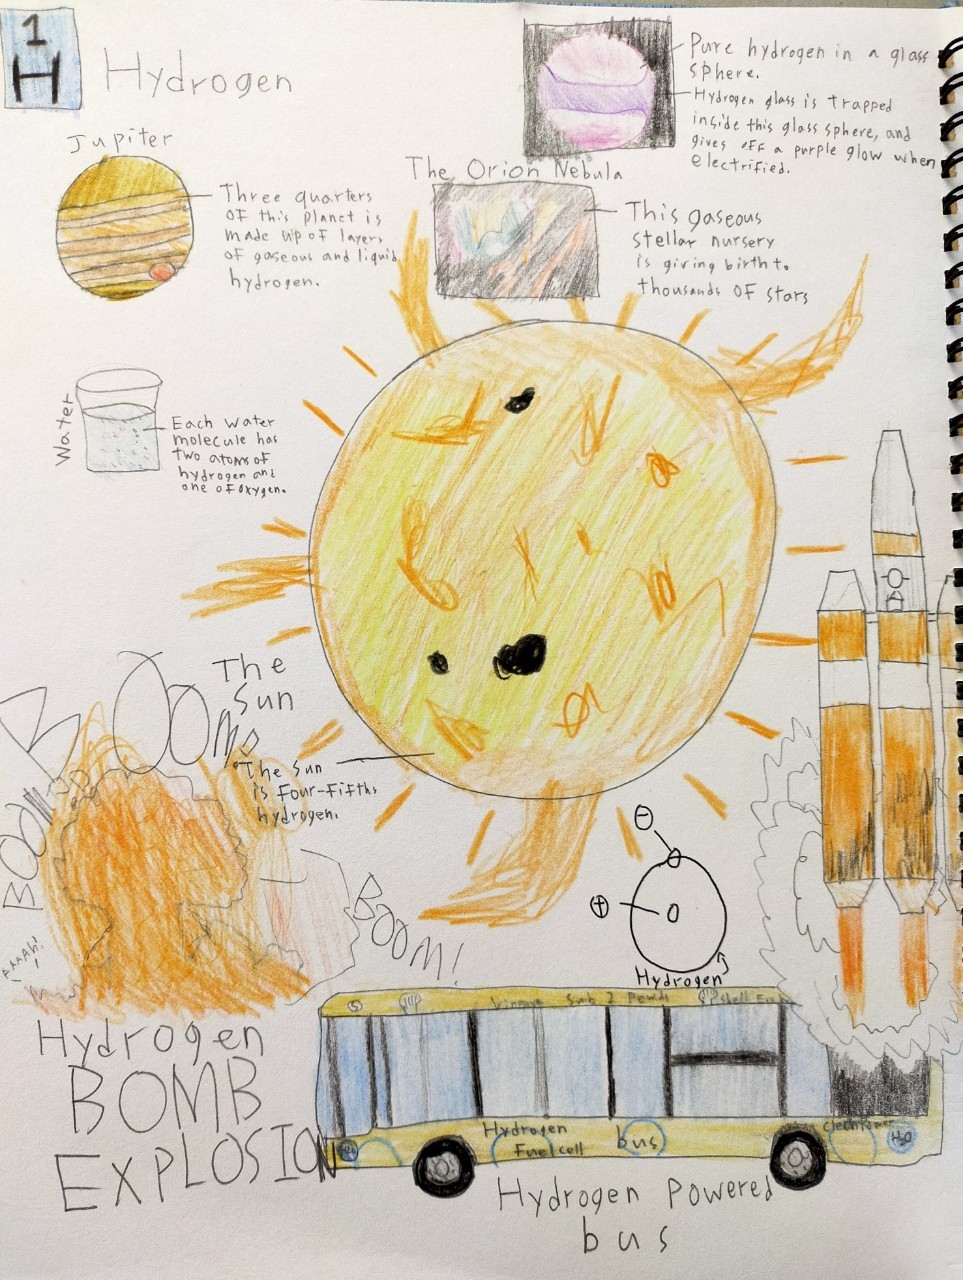 1
H
Hydrogen
Pure hydrogen in a glass
sphere.
Hydrogen glass is trapped
inside this glass sphere, and
gives off a purple glow when
electrified.
Jupiter
Three quarters
of this planet is
made up of layers
of gaseous and liquid
hydrogen.
The Orion Nebula
This gaseous
stellar nursery
is giving birth to
thousands of stars
Water
Each water
molecule has
two atoms of
hydrogen and
one of oxygen.
The
Sun
The Sun
is four-fifths
hydrogen.
BOOM
BOOM
BOOM!
AAAAh!
Hydrogen
BOMB
EXPLOSION
−
+
Hydrogen
Sub 2
Shell
Hydrogen
Fuel cell
bus
clean power
H2O
Hydrogen Powered
bus